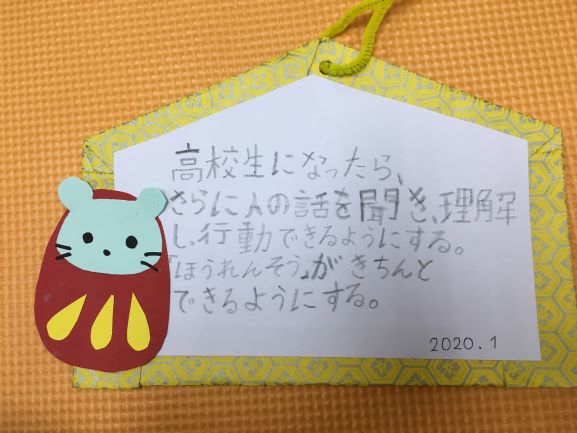 高校生になったら、
さらに人の話を聞き、理解
し、行動できるようにする。
「ほうれんそう」がきちんと
できるようにする。
2020.1